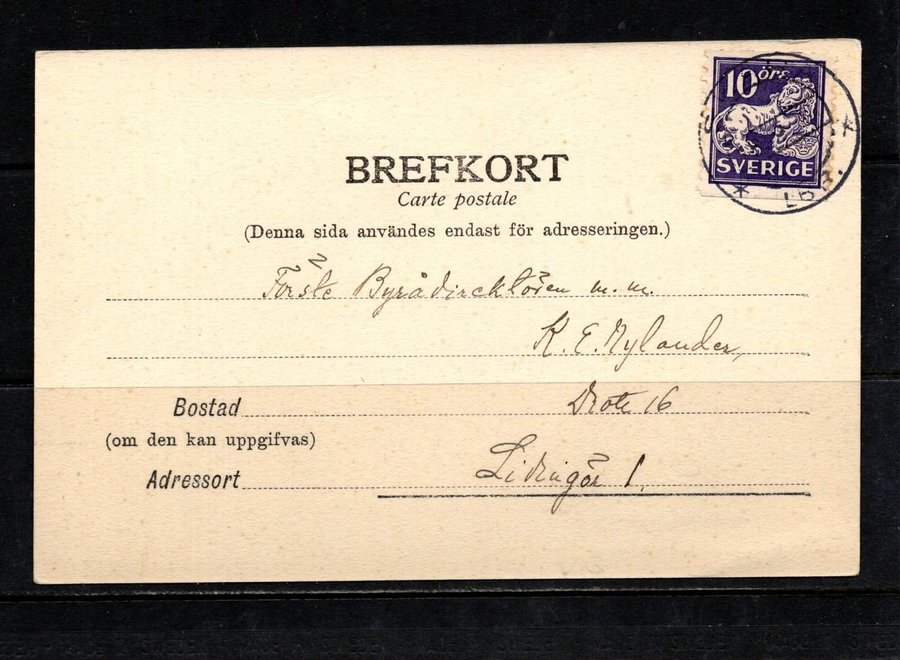 10 öre
SVERIGE
BREFKORT
Carte postale
(Denna sida användes endast för adresseringen.)
Förste Byrådirecktören m.m.
K. E. Nylander,
Bostad 16
(om den kan uppgifvas)
Adressort Lidingö 1.